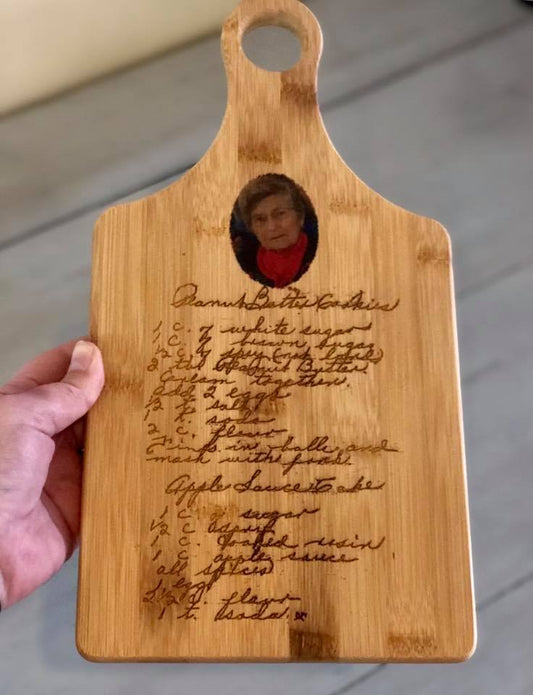 Peanut Butter Cookies
1 c. of white sugar
1 c. of brown sugar
1/2 c. of
2 tbs Peanut Butter
Cream together.
add 2 eggs
1/2 t. salt
1 t. soda
2 c. flour
in balls and
mash with fork.
Apple Sauce Cake
1 c sugar
1/2 c
1 c. raisin
1 c apple sauce
all spices
1 egg
2 1/2 c. flour
1 t. soda